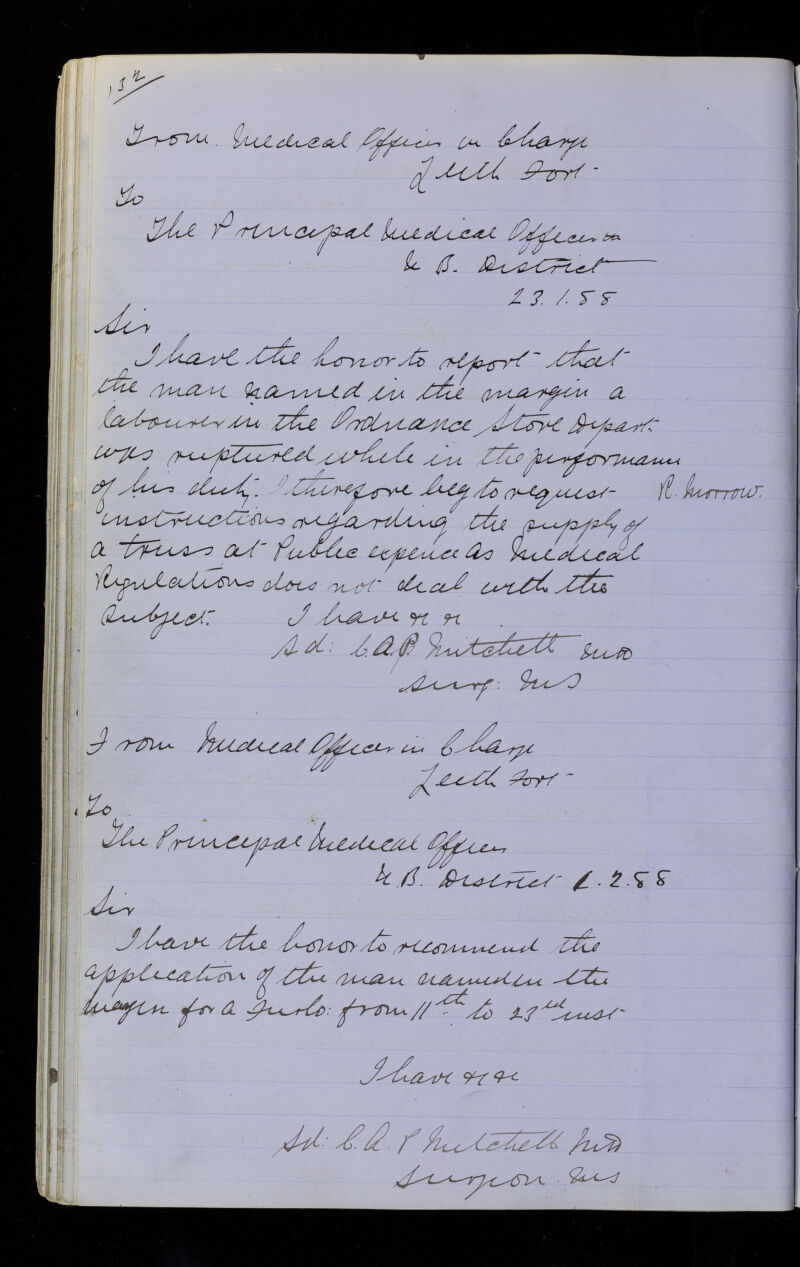 132
From Medical Officer in Charge
Leith Fort
To
The Principal Medical Officer
N B. District
23.1.88
Sir
I have the honor to report that
the man named in the margin a
labourer in the Ordnance Store Depart.
was ruptured while in the performance
of his duty. I therefore beg to request R. Morrow.
instructions regarding the supply of
a truss at Public expence as Medical
Regulations does not deal with the
subject. I have &c &c
Sd: C.A.P. Mitchell MD
Surg: MS
From Medical Officer in Charge
Leith Fort
To
The Principal Medical Officer
N.B. District 1.2.88
Sir
I have the honor to recommend the
application of the man named in the
margin for a Furlo: from 11th to 23rd inst
I have &c &c
Sd: C. A. P Mitchell MD
Surgeon MS